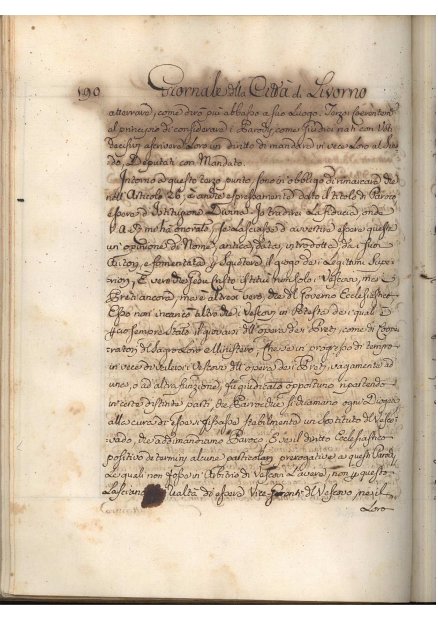 190 Giornale della Città di Livorno
atterrare, come dirò più abbasso a suo luogo. Terzo: Coerentem
al principio di considerare i Parochi come Giudici nati con Voto
decisivo ascrivere loro in diritto di mandare in vece loro al Sino
do, Deputati con Mandato.
Intorno a questo terzo punto, sono in obbligo di rimarcare che
nell Articolo 26 è anche espressamente dato il titolo di Paroco
essere di Istituzione Divina. Io tradirei la fiducia, onde
V. A. R. mi ha onorato, se lasciassi di avvertire essere questa
un' opinione di Nome, antica data, introdotta, da i suoi
Autori, e fomentata per Squotere il giogo dei Legittimi Supe-
riori, È vero che Gesù Cristo istituì non solo i Vescovi, ma i
Preti ancora, ma è altresì vero, che del Governo Ecclesiastico
Esso non incaricò altro che i Vescovi in Potestà dei quali
è sempre stato il giovarsi dell' opera dei Preti, come di Coope
ratori del Sagro loro Ministero, che se in progresso di tempo
in vece di valersi i Vescovi dell' opera dei Preti, vagamente ad
una, o ad altra funzione, fu giudicato opportuno ripartendo
in certe distinte parti, che Parrochie si chiamano ogni Diogesi
alla cura di esse vi fosse stabilmente un sostituto del Vesco-
vado, che addimandiamo Paroco. E se il diritto Ecclesiastico
positivo determinò alcune particolari prerogative a questi Parochi
le quali non fosse in Arbitrio di Vescovi Levare, non per questo
lasciano qualità di essere Vice-gerenti del Vescovo, nei
Loro